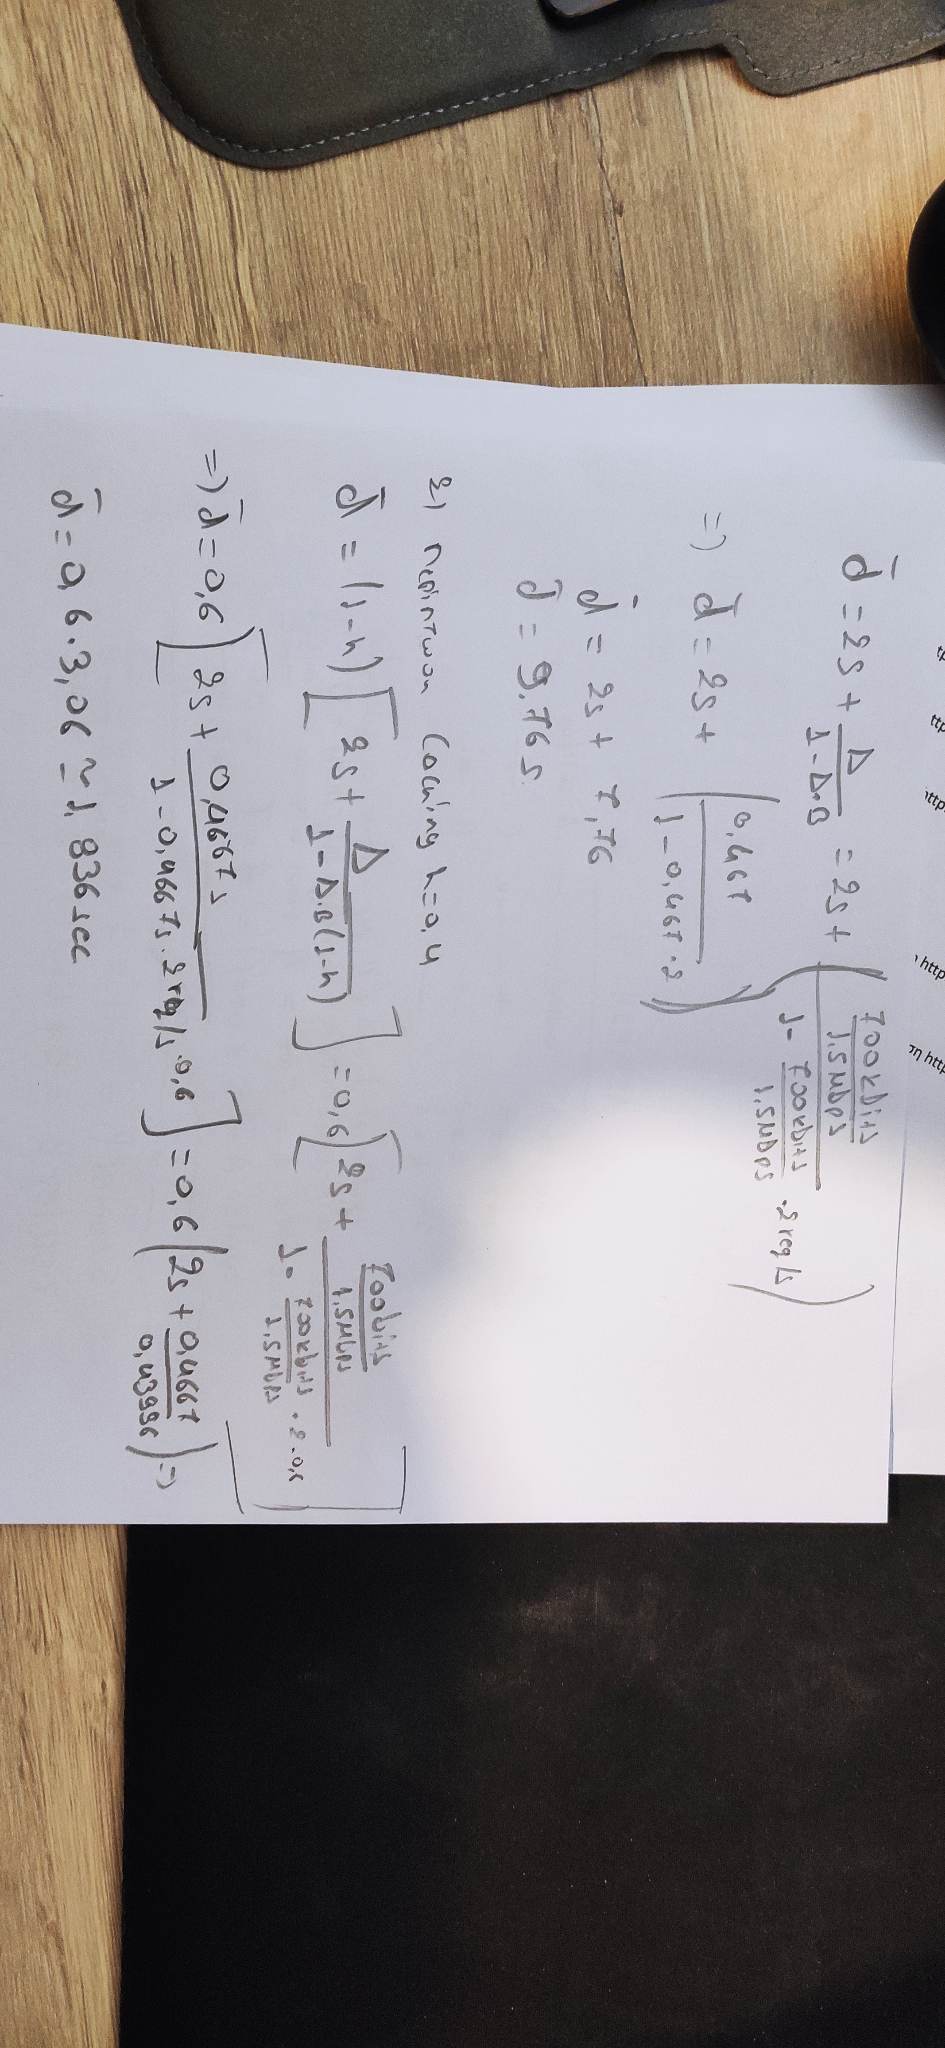 ttp
http
http
τη http
d̄ = 2s + Δ / (1-Δ·B) = 2s + ( (700kbits / 1.5Mbps) / (1 - (700kbits / 1.5Mbps) · 2 req/s) )
=) d̄ = 2s + ( 0,467 / (1-0,467·2) )
d̄ = 2s + 7,76
d̄ = 9.76 s.
2) περίπτωση Caching h=0,4
d̄ = (1-h) [ 2s + Δ / (1-Δ.B(1-h)) ] = 0,6 [ 2s + (700bits / 1,5Mbps) / (1- (700kbits / 1,5Mbps) · 2 · 0,6) ]
=) d̄ = 0,6 [ 2s + 0,4667s / (1-0,4667s · 2req/s · 0,6) ] = 0,6 ( 2s + 0,4667 / 0,43996 ) =)
d̄ = 0,6 · 3,06 ≃ 1,836 sec